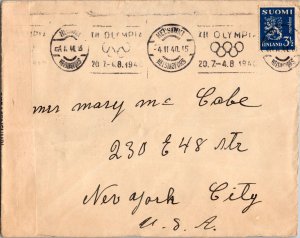 HELSINKI
-4.II.40.15
HELSINGFORS
XII OLYMPIA
20.7-4.8.1940
HELSINKI
-4.II.40.15
HELSINGFORS
XII OLYMPIA
20.7-4.8.1940
SUOMI
FINLAND 3½
Mrs Mary Mc Cabe
230 E 48 str
New York City
U.S.A.